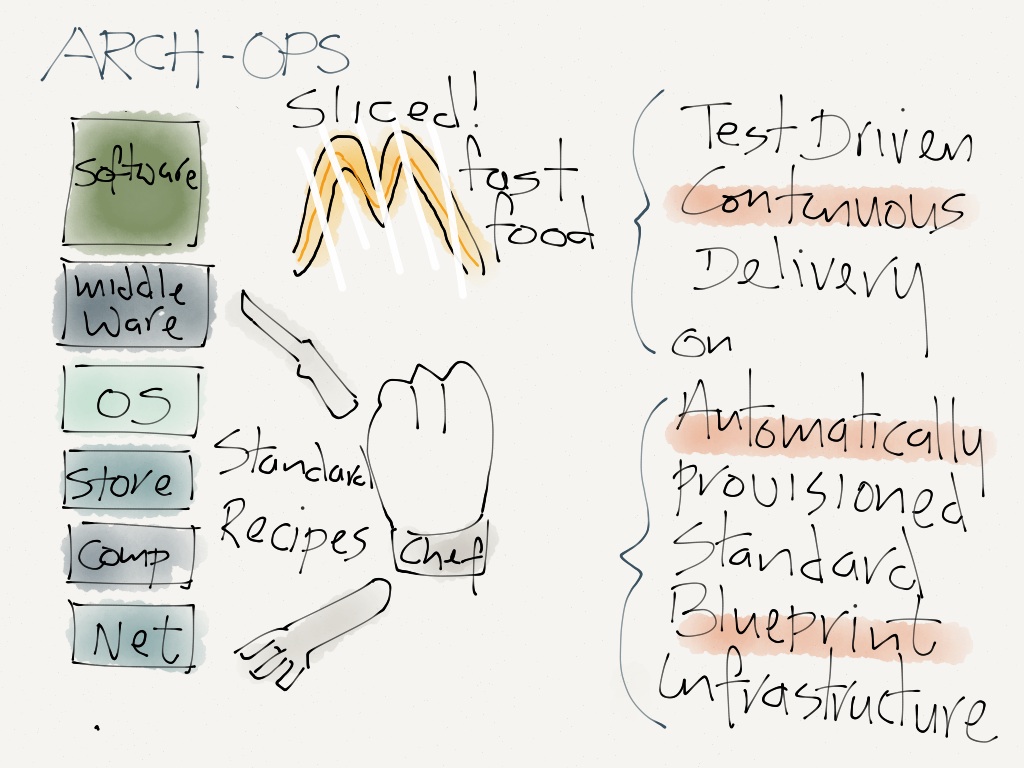 ARCH-OPS
Sliced!
fast
food
Software
middle
Ware
OS
Store
Comp
Net
Standard
Recipes
Chef
Test Driven
Contunuous
Delivery
on
Automatically
provisioned
Standard
Blueprint
infrastructure